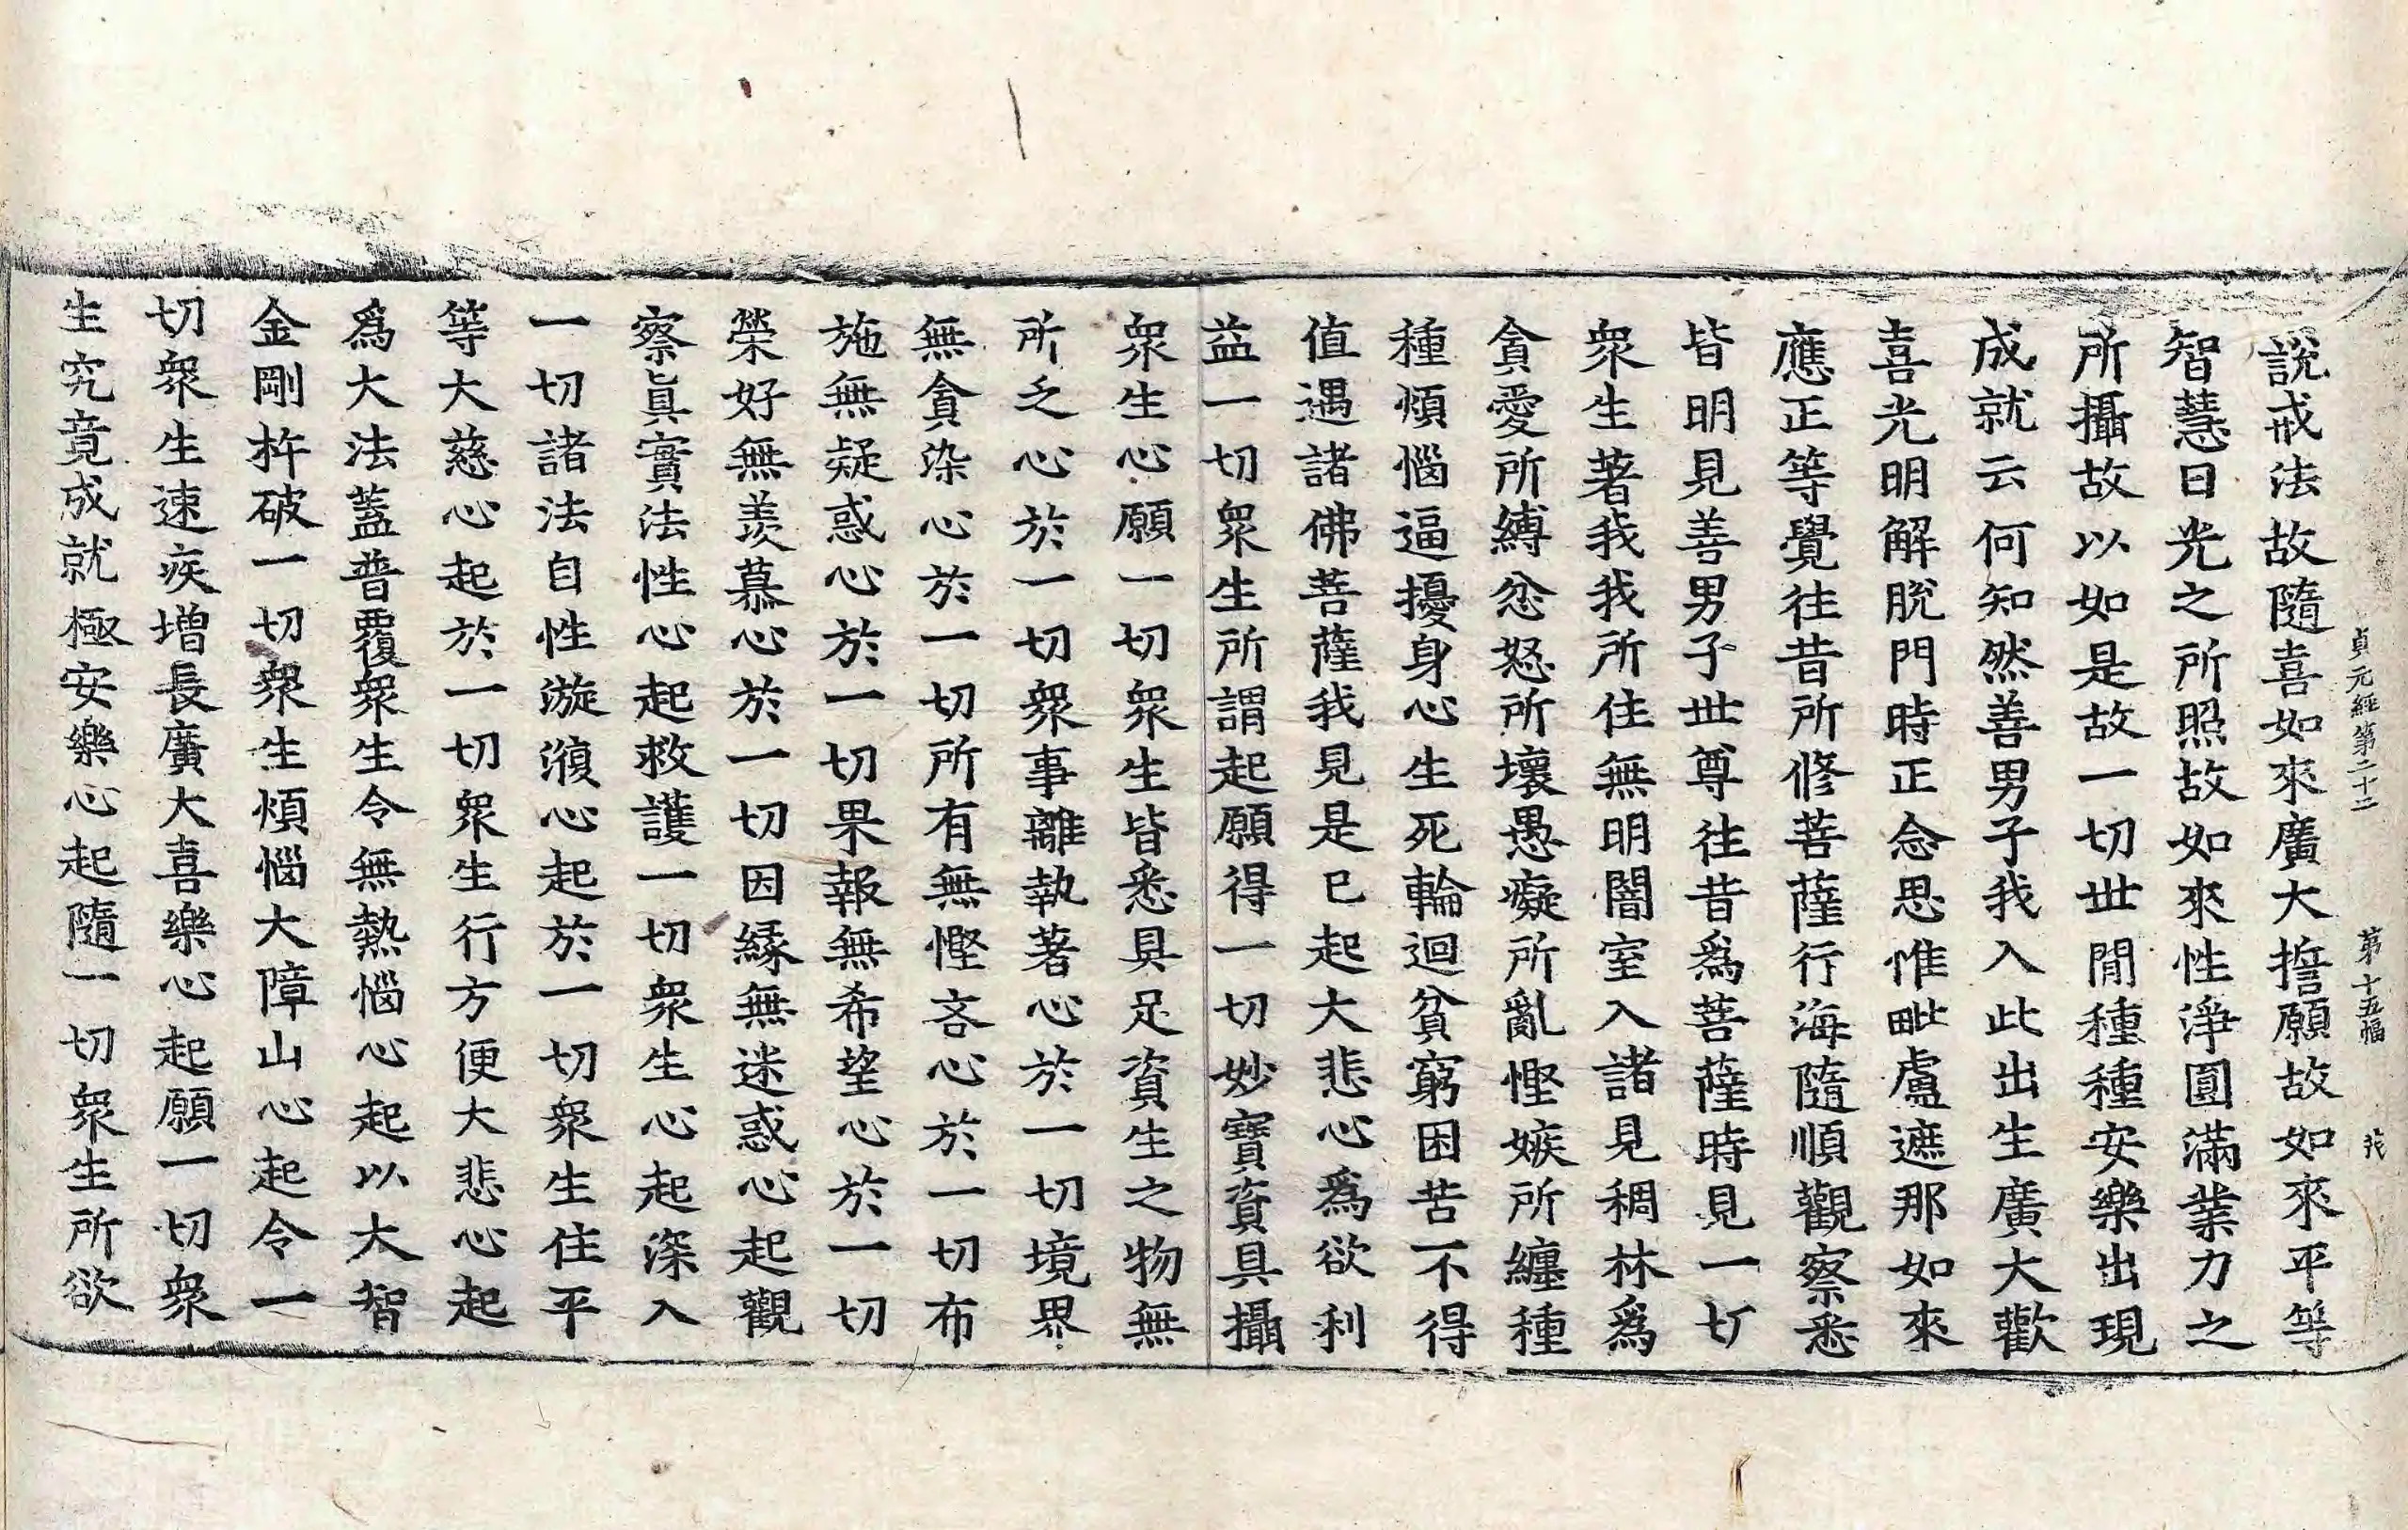 貞元經第二十二 第十五幅
說戒法故隨喜如來廣大誓願故如來平等
智慧日光之所照故如來性淨圓滿業力之
所攝故以如是故一切世閒種種安樂出現
成就云何知然善男子我入此出生廣大歡
喜光明解脫門時正念思惟毗盧遮那如來
應正等覺往昔所修菩薩行海隨順觀察悉
皆明見善男子世尊往昔爲菩薩時見一切
衆生著我我所住無明闇室入諸見稠林爲
貪愛所縛忿怒所壞愚癡所亂慳嫉所纏種
種煩惱逼擾身心生死輪迴貧窮困苦不得
值遇諸佛菩薩我見是已起大悲心爲欲利
益一切衆生所謂起願得一切妙寶資具攝
衆生心願一切衆生皆悉具足資生之物無
所乏心於一切衆事離執著心於一切境界
無貪染心於一切所有無慳吝心於一切布
施無疑惑心於一切果報無希望心於一切
榮好無羡慕心於一切因緣無迷惑心起觀
察眞實法性心起救護一切衆生心起深入
一切諸法自性漩澓心起於一切衆生住平
等大慈心起於一切衆生行方便大悲心起
爲大法蓋普覆衆生令無熱惱心起以大智
金剛杵破一切衆生煩惱大障山心起令一
切衆生速疾增長廣大喜樂心起願一切衆
生究竟成就極安樂心起隨一切衆生所欲